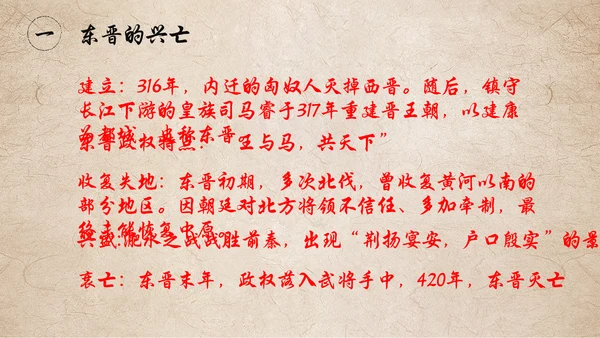 一 东晋的兴亡
建立：316年，内迁的匈奴人灭掉西晋。随后，镇守
长江下游的皇族司马睿于317年重建晋王朝，以建康
东晋政权特点：“王与马，共天下”
收复失地：东晋初期，多次北伐，曾收复黄河以南的
部分地区。因朝廷对北方将领不信任、多加牵制，最
终未能恢复中原。
兴盛：淝水之战战胜前秦，出现“荆扬宴安，户口殷实”的景
衰亡：东晋末年，政权落入武将手中，420年，东晋灭亡